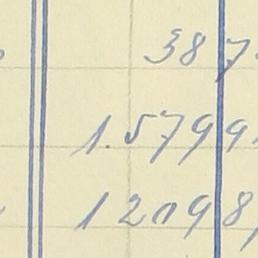 387
1.5799
12098,